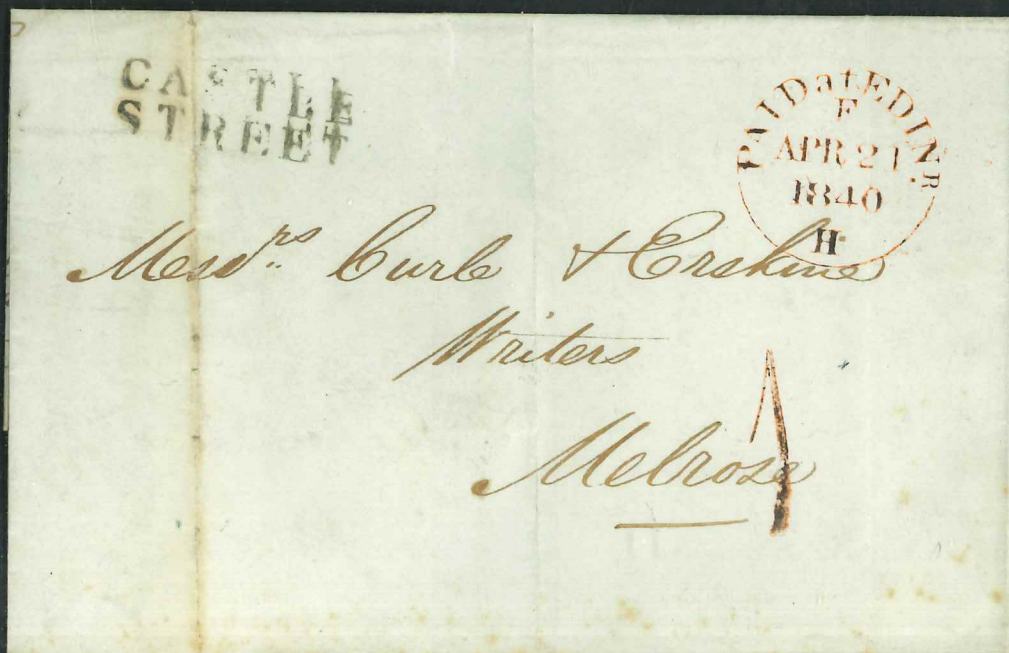 CASTLE
STREET
PAID at EDINR.
F
APR 21
1840
H
Messrs. Curle & Erskine
Writers
Melrose
1